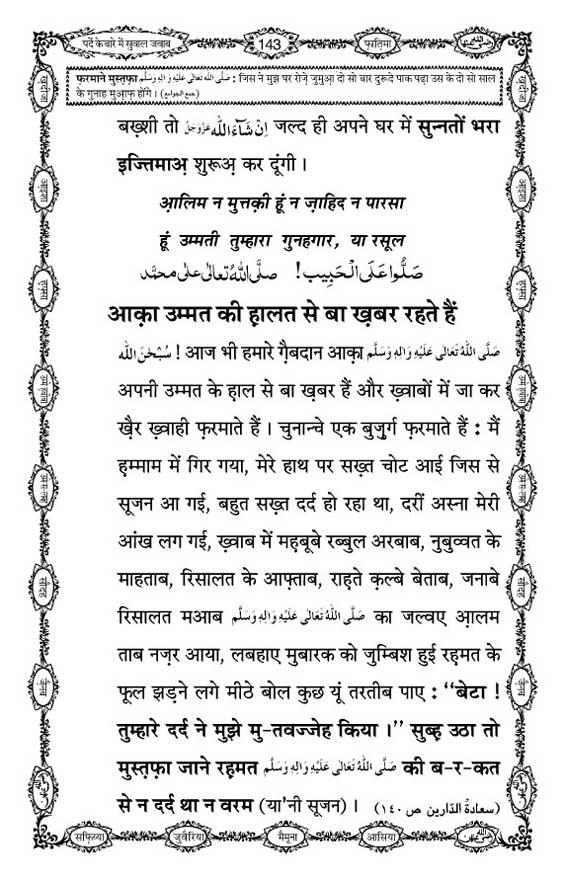 पर्दे के बारे में सुवाल जवाब
143
फ़ातिमा
फ़रमाने मुस्तफ़ा صَلَّى اللهُ تَعَالٰى عَلَيْهِ وَاٰلِهٖ وَسَلَّم : जिस ने मुझ पर रोज़े जुमुआ़ दो सो बार दुरूदे पाक पढ़ा उस के दो सो साल
के गुनाह मुआ़फ़ होंगे । (جمع الجوامع)
बख़्शी तो اِنْ شَاءَ اللّٰه عَزَّوَجَلَّ जल्द ही अपने घर में सुन्नतों भरा
इज्तिमाअ़ शुरूअ़ कर दूंगी ।
आ़लिम न मुत्तक़ी हूं न ज़ाहिद न पारसा
हूं उम्मती तुम्हारा गुनहगार, या रसूल
صَلُّوا عَلَى الْحَبِيب! صلَّى اللهُ تعالٰى على محمَّد
आक़ा उम्मत की ह़ालत से बा ख़बर रहते हैं
سُبْحٰنَ اللّٰه ! आज भी हमारे ग़ैबदान आक़ा صَلَّى اللهُ تَعَالٰى عَلَيْهِ وَاٰلِهٖ وَسَلَّم
अपनी उम्मत के ह़ाल से बा ख़बर हैं और ख़्वाबों में जा कर
ख़ैर ख़्वाही फ़रमाते हैं । चुनान्चे एक बुज़ुर्ग फ़रमाते हैं : मैं
ह़म्माम में गिर गया, मेरे हाथ पर सख़्त चोट आई जिस से
सूजन आ गई, बहुत सख़्त दर्द हो रहा था, दरीं अस्ना मेरी
आंख लग गई, ख़्वाब में महबूबे रब्बुल अरबाब, नुबुव्वत के
माहताब, रिसालत के आफ़्ताब, राह़ते क़ल्बे बेताब, जनाबे
रिसालत मआब صَلَّى اللهُ تَعَالٰى عَلَيْهِ وَاٰلِهٖ وَسَلَّم का जल्वए आ़लम
ताब नज़र आया, लबहाए मुबारक को जुम्बिश हुई रह़मत के
फूल झड़ने लगे मीठे बोल कुछ यूं तरतीब पाए : “बेटा !
तुम्हारे दर्द ने मुझे मु-तवज्जेह किया ।” सुब्ह़ उठा तो
मुस्त़फ़ा जाने रह़मत صَلَّى اللهُ تَعَالٰى عَلَيْهِ وَاٰلِهٖ وَسَلَّم की ब-र-कत
से न दर्द था न वरम (या'नी सूजन) । (سعادةُ الدّارين ص ١٤٠)
सफ़िय्या
जुवैरिया
मैमूना
आसिया